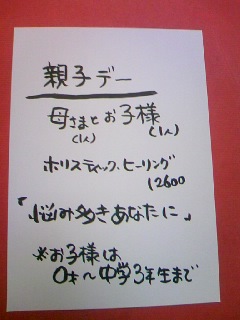 親子デー
母さまとお子様
(1人) (1人)
ホリスティック、ヒーリング
12600
「悩み多きあなたに」
※お子様は
0才〜中学3年生まで